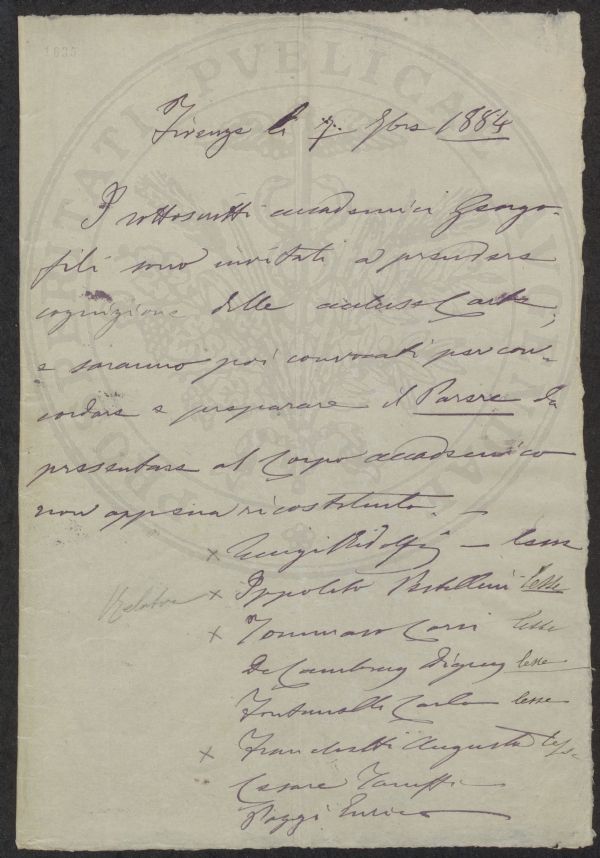 1633
PROSPERITATI PVBLICAE AVGENDAE
Firenze li 7. 9bre 1884
I sottoscritti accademici Georgo-
fili sono invitati a prendere
cognizione delle accluse Carte,
e saranno poi convocati per con-
cordare e preparare il Parere da
presentare al Corpo accademico
non appena ricostituito. —
× Luigi Ridolfi — lesse
Relatore × Ippolito Pestellini lesse
× Tommaso Corsi lesse
De Cambray Digny lesse
Fontanelli Carlo lesse
× Franchetti Augusto lesse
Cesare
Poggi Enrico